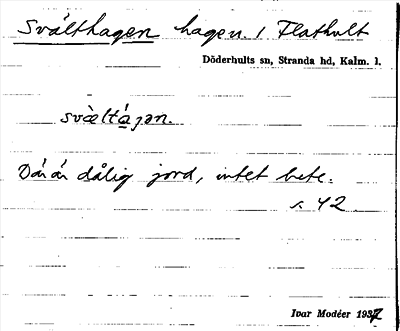 Svälthagen hagen. / Flathult
Döderhults sn, Stranda hd, Kalm. l.
svæ̀ltáɡən.
Där är dålig jord, intet bete.
s. 42
Ivar Modéer 1937